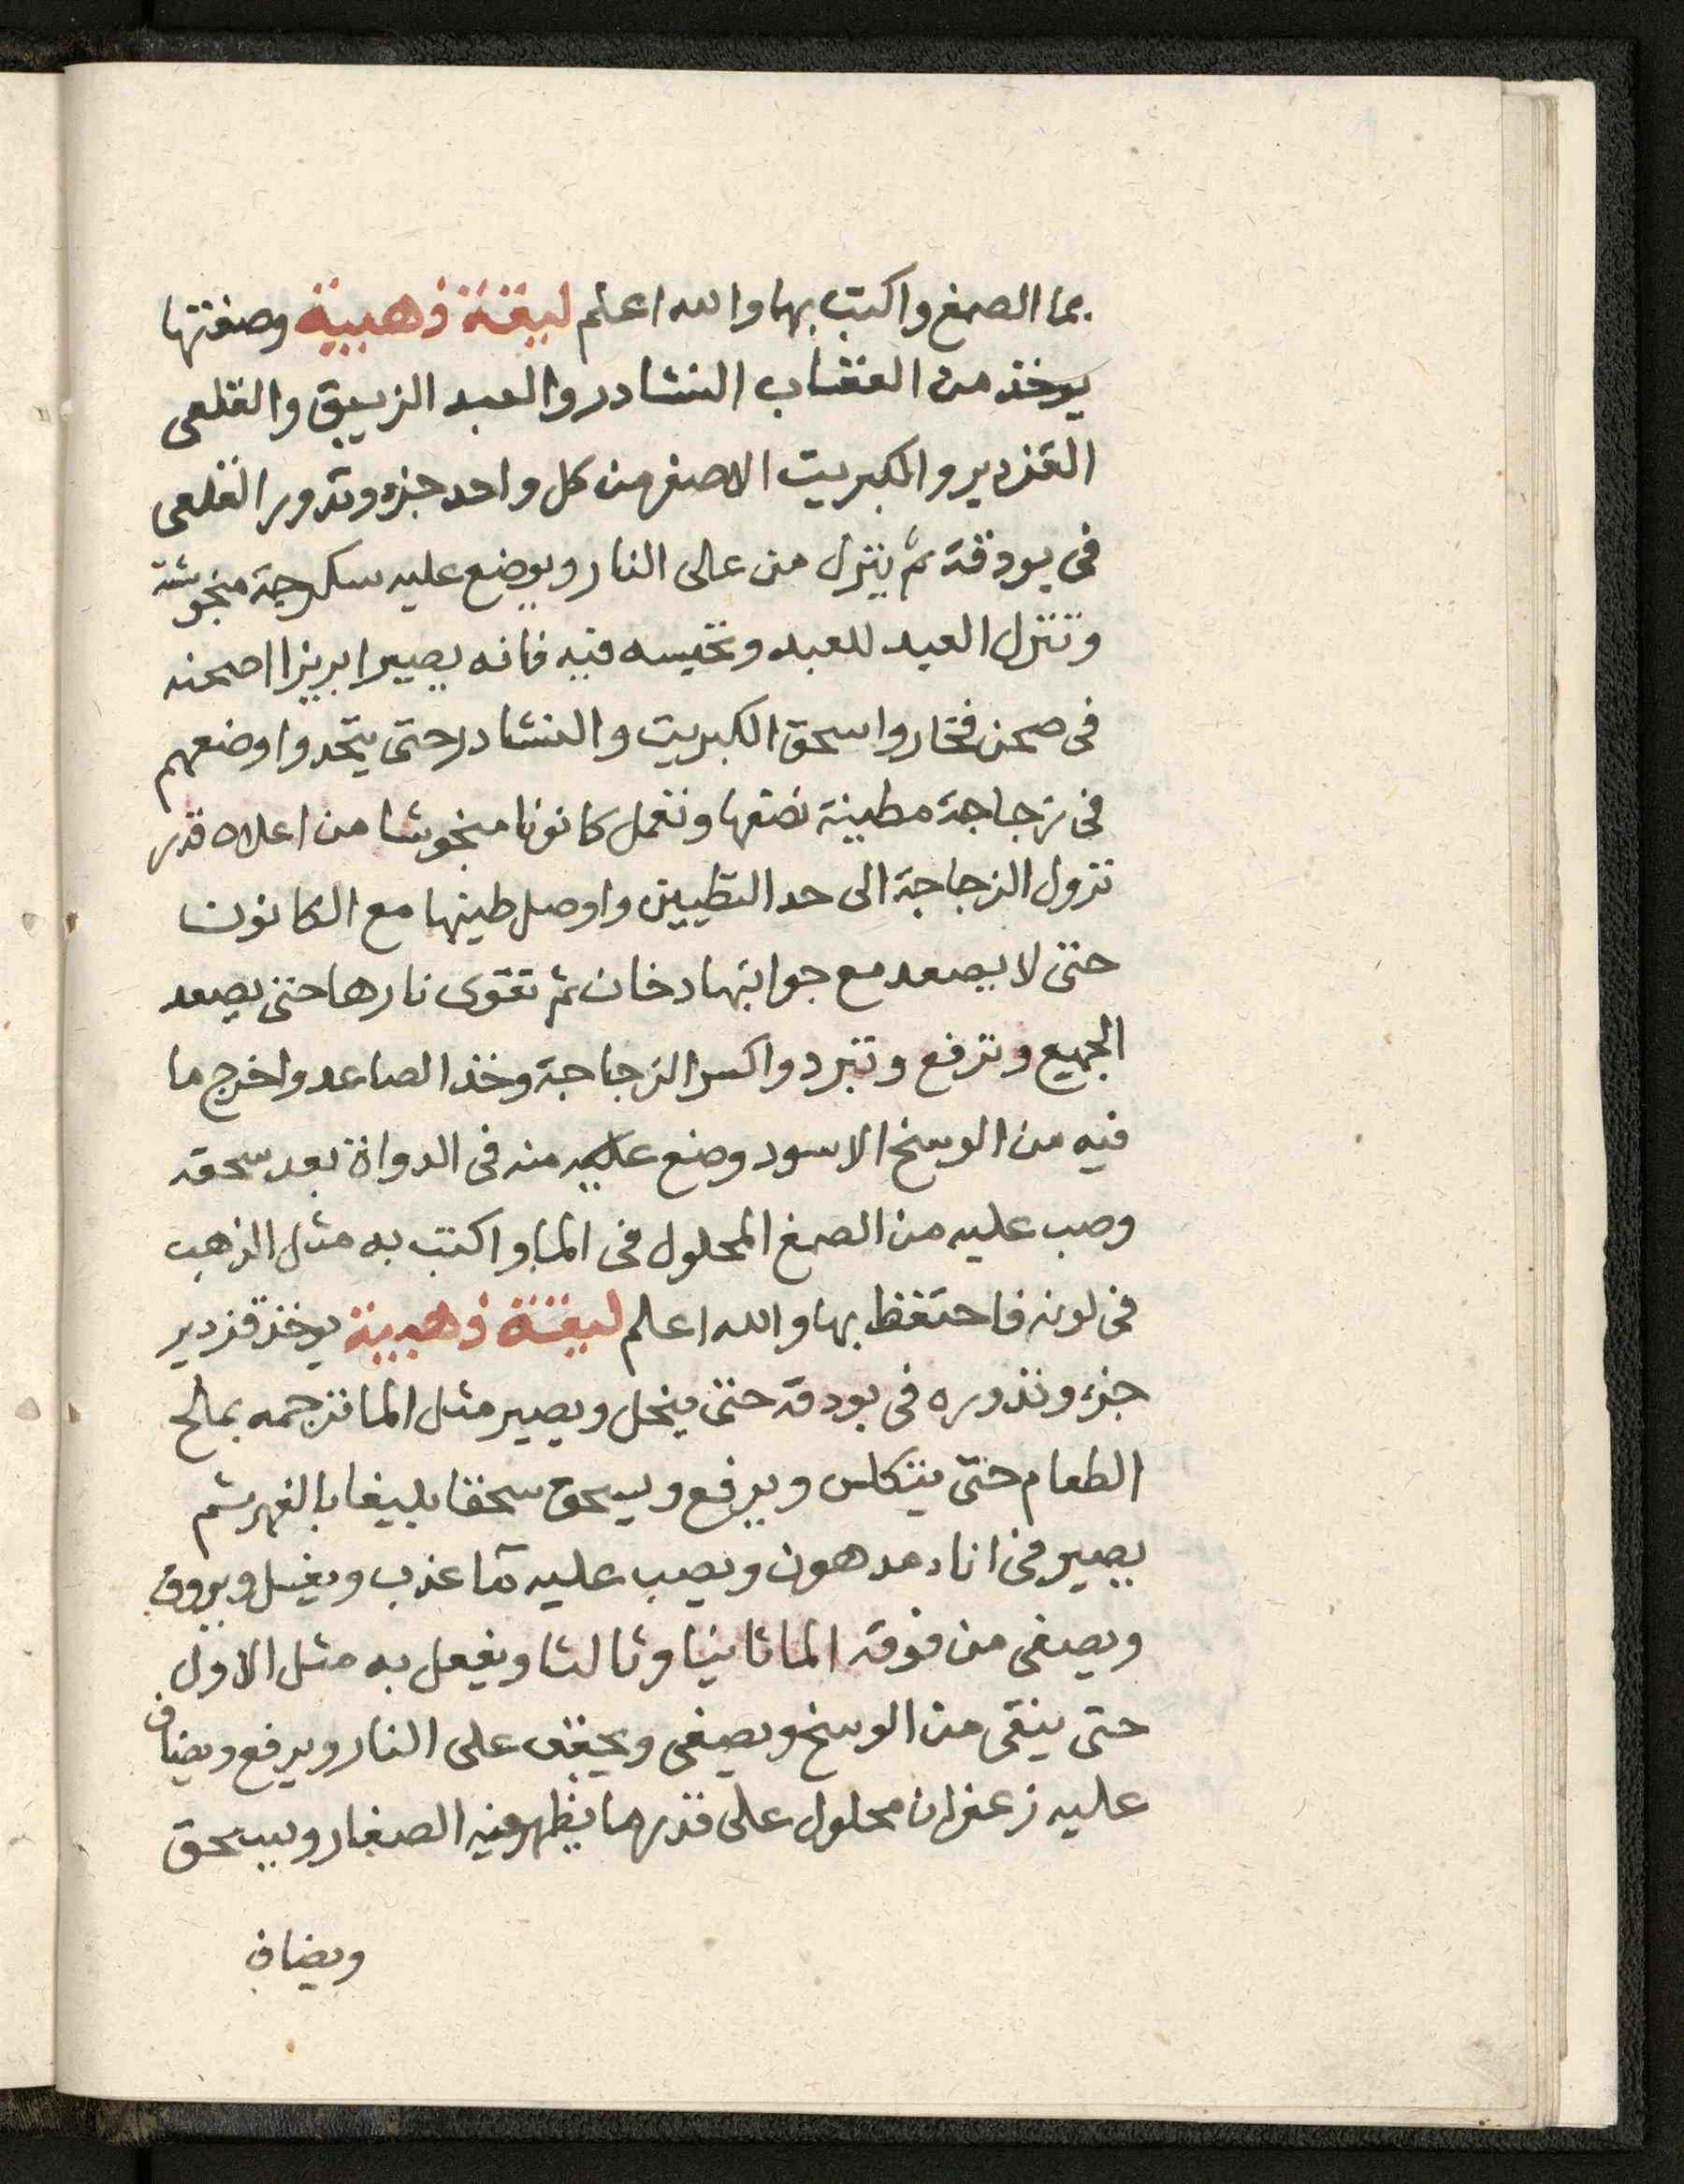 بما الصمغ واكتب بها والله اعلم ليقة ذهبية وصفتها
يوخذ من العقاب النشادر والعبد الزيبق والقلعى
القزدير والكبريت الاصفر من كل واحد جزء وتدور القلعى
فى بودقة ثم ينزل من على النار ويوضع عليه سكرجة منخوشة
وتنزل العبد للعبد وتحبسه فيه فانه يصير ابريزا اصحنه
فى صحن فخار واسحق الكبريت والنشادر حتى يتحدوا وضعهم
فى زجاجة مطينة نصفها وتعمل كانونا منخوشا من اعلاه قدر
نزول الزجاجة الى حد التطيين واوصل طينها مع الكانون
حتى لا يصعد مع جوانبها دخان ثم تقوى نارها حتى يصعد
الجميع وترفع وتبرد واكسر الزجاجة وخذ الصاعد واخرج ما
فيه من الوسخ الاسود وضع عليه منه فى الدواة بعد سحقه
وصب عليه من الصمغ المحلول فى الما واكتب به مثل الذهب
فى لونه فاحتفظ بها والله اعلم ليقة ذهبية يوخذ قزدير
جزء وتدوره فى بودقة حتى ينحل ويصير مثل الما ترجمه بملح
الطعام حتى يتكلس ويرفع ويسحق سحقا بليغا بالفهر ثم
يصير فى اناء مدهون ويصب عليه مآ عذب ويغسل ويروق
ويصفى من فوقه الما ثانيا وثالثا ويفعل به مثل الاول
حتى ينقى من الوسخ ويصفى ويجفف على النار ويرفع ويضاف
عليه زعفران محلول على قدر ما يظهر فيه الصفار ويسحق
ويضاف